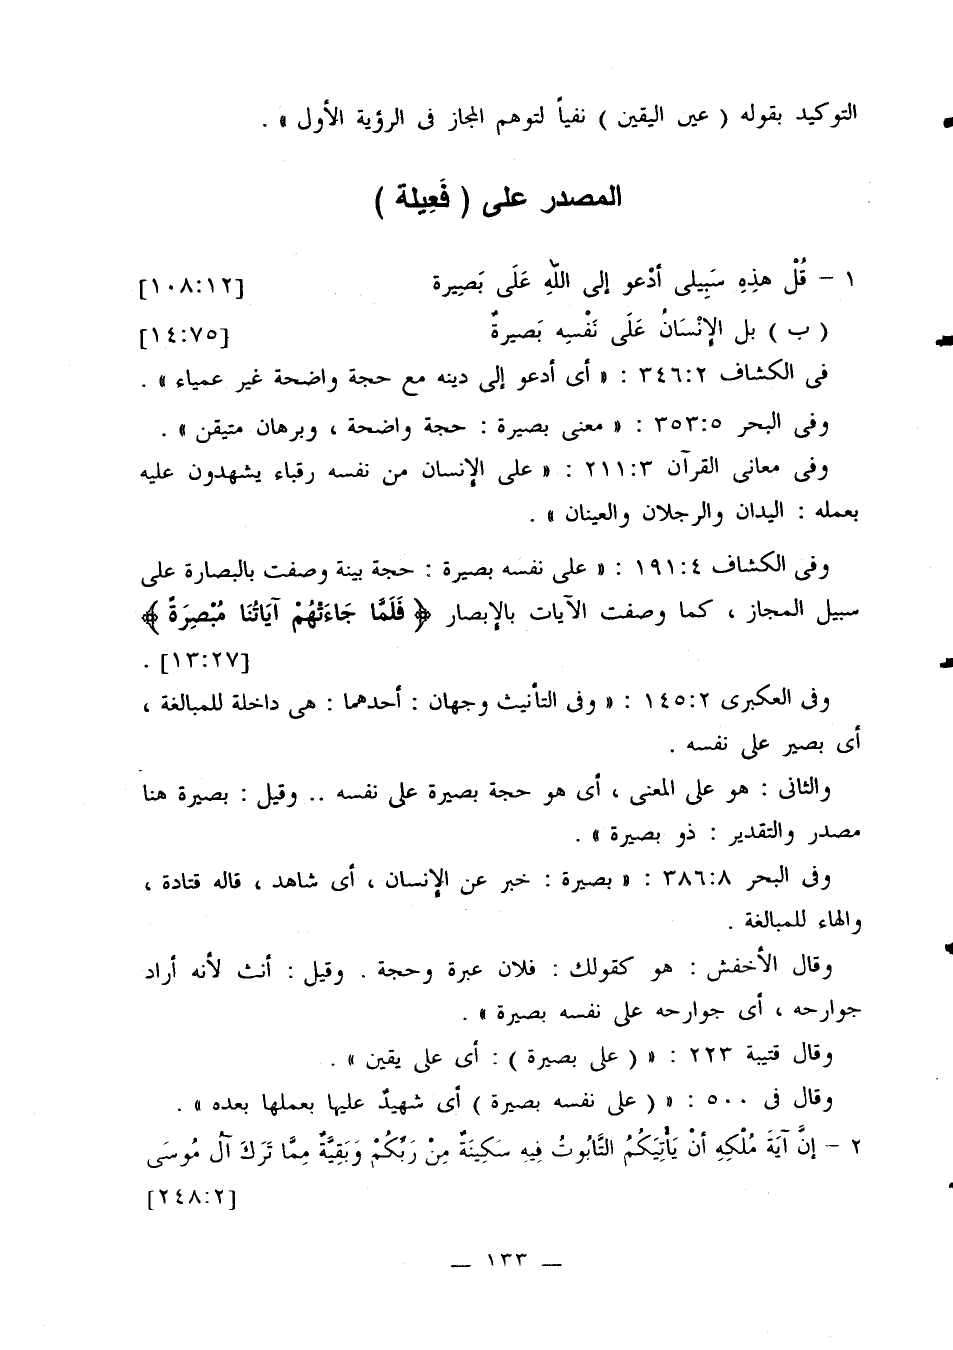 التوكيد بقوله ( عين اليقين ) نفياً لتوهم المجاز فى الرؤية الأول » .
المصدر على ( فَعِيلة )
١ – قُلْ هذِهِ سَبِيلى أدْعو إلى اللّهِ عَلَى بَصِيرة [١٠٨:١٢]
( ب ) بل الإنْسَانُ عَلَى نَفْسِه بَصيرةٌ [١٤:٧٥]
فى الكشاف ٣٤٦:٢ : « أى أدعو إلى دينه مع حجة واضحة غير عمياء » .
وفى البحر ٣٥٣:٥ : « معنى بصيرة : حجة واضحة ، وبرهان متيقن » .
وفى معانى القرآن ٢١١:٣ : « على الإنسان من نفسه رقباء يشهدون عليه
بعمله : اليدان والرجلان والعينان » .
وفى الكشاف ١٩١:٤ : « على نفسه بصيرة : حجة بينة وصفت بالبصارة على
سبيل المجاز ، كما وصفت الآيات بالإبصار ﴿ فَلَمَّا جَاءَتْهُمْ آيَاتُنَا مُبْصِرَةً ﴾
[١٣:٢٧] .
وفى العكبرى ١٤٥:٢ : « وفى التأنيث وجهان : أحدهما : هى داخلة للمبالغة ،
أى بصير على نفسه .
والثانى : هو على المعنى ، أى هو حجة بصيرة على نفسه .. وقيل : بصيرة هنا
مصدر والتقدير : ذو بصيرة » .
وفى البحر ٣٨٦:٨ : « بصيرة : خبر عن الإنسان ، أى شاهد ، قاله قتادة ،
والهاء للمبالغة .
وقال الأخفش : هو كقولك : فلان عبرة وحجة . وقيل : أنث لأنه أراد
جوارحه ، أى جوارحه على نفسه بصيرة » .
وقال قتيبة ٢٢٣ : « ( على بصيرة ) : أى على يقين » .
وقال فى ٥٠٠ : « ( على نفسه بصيرة ) أى شهيدٌ عليها بعملها بعده » .
٢ – إنَّ آيَةَ مُلْكِهِ أنْ يَأْتِيَكُمُ التَّابُوتُ فِيهِ سَكِينَةٌ مِنْ رَبِّكُمْ وَبَقِيَّةٌ مِمَّا تَرَكَ آلُ مُوسَى
[٢٤٨:٢]
— ١٣٣ —